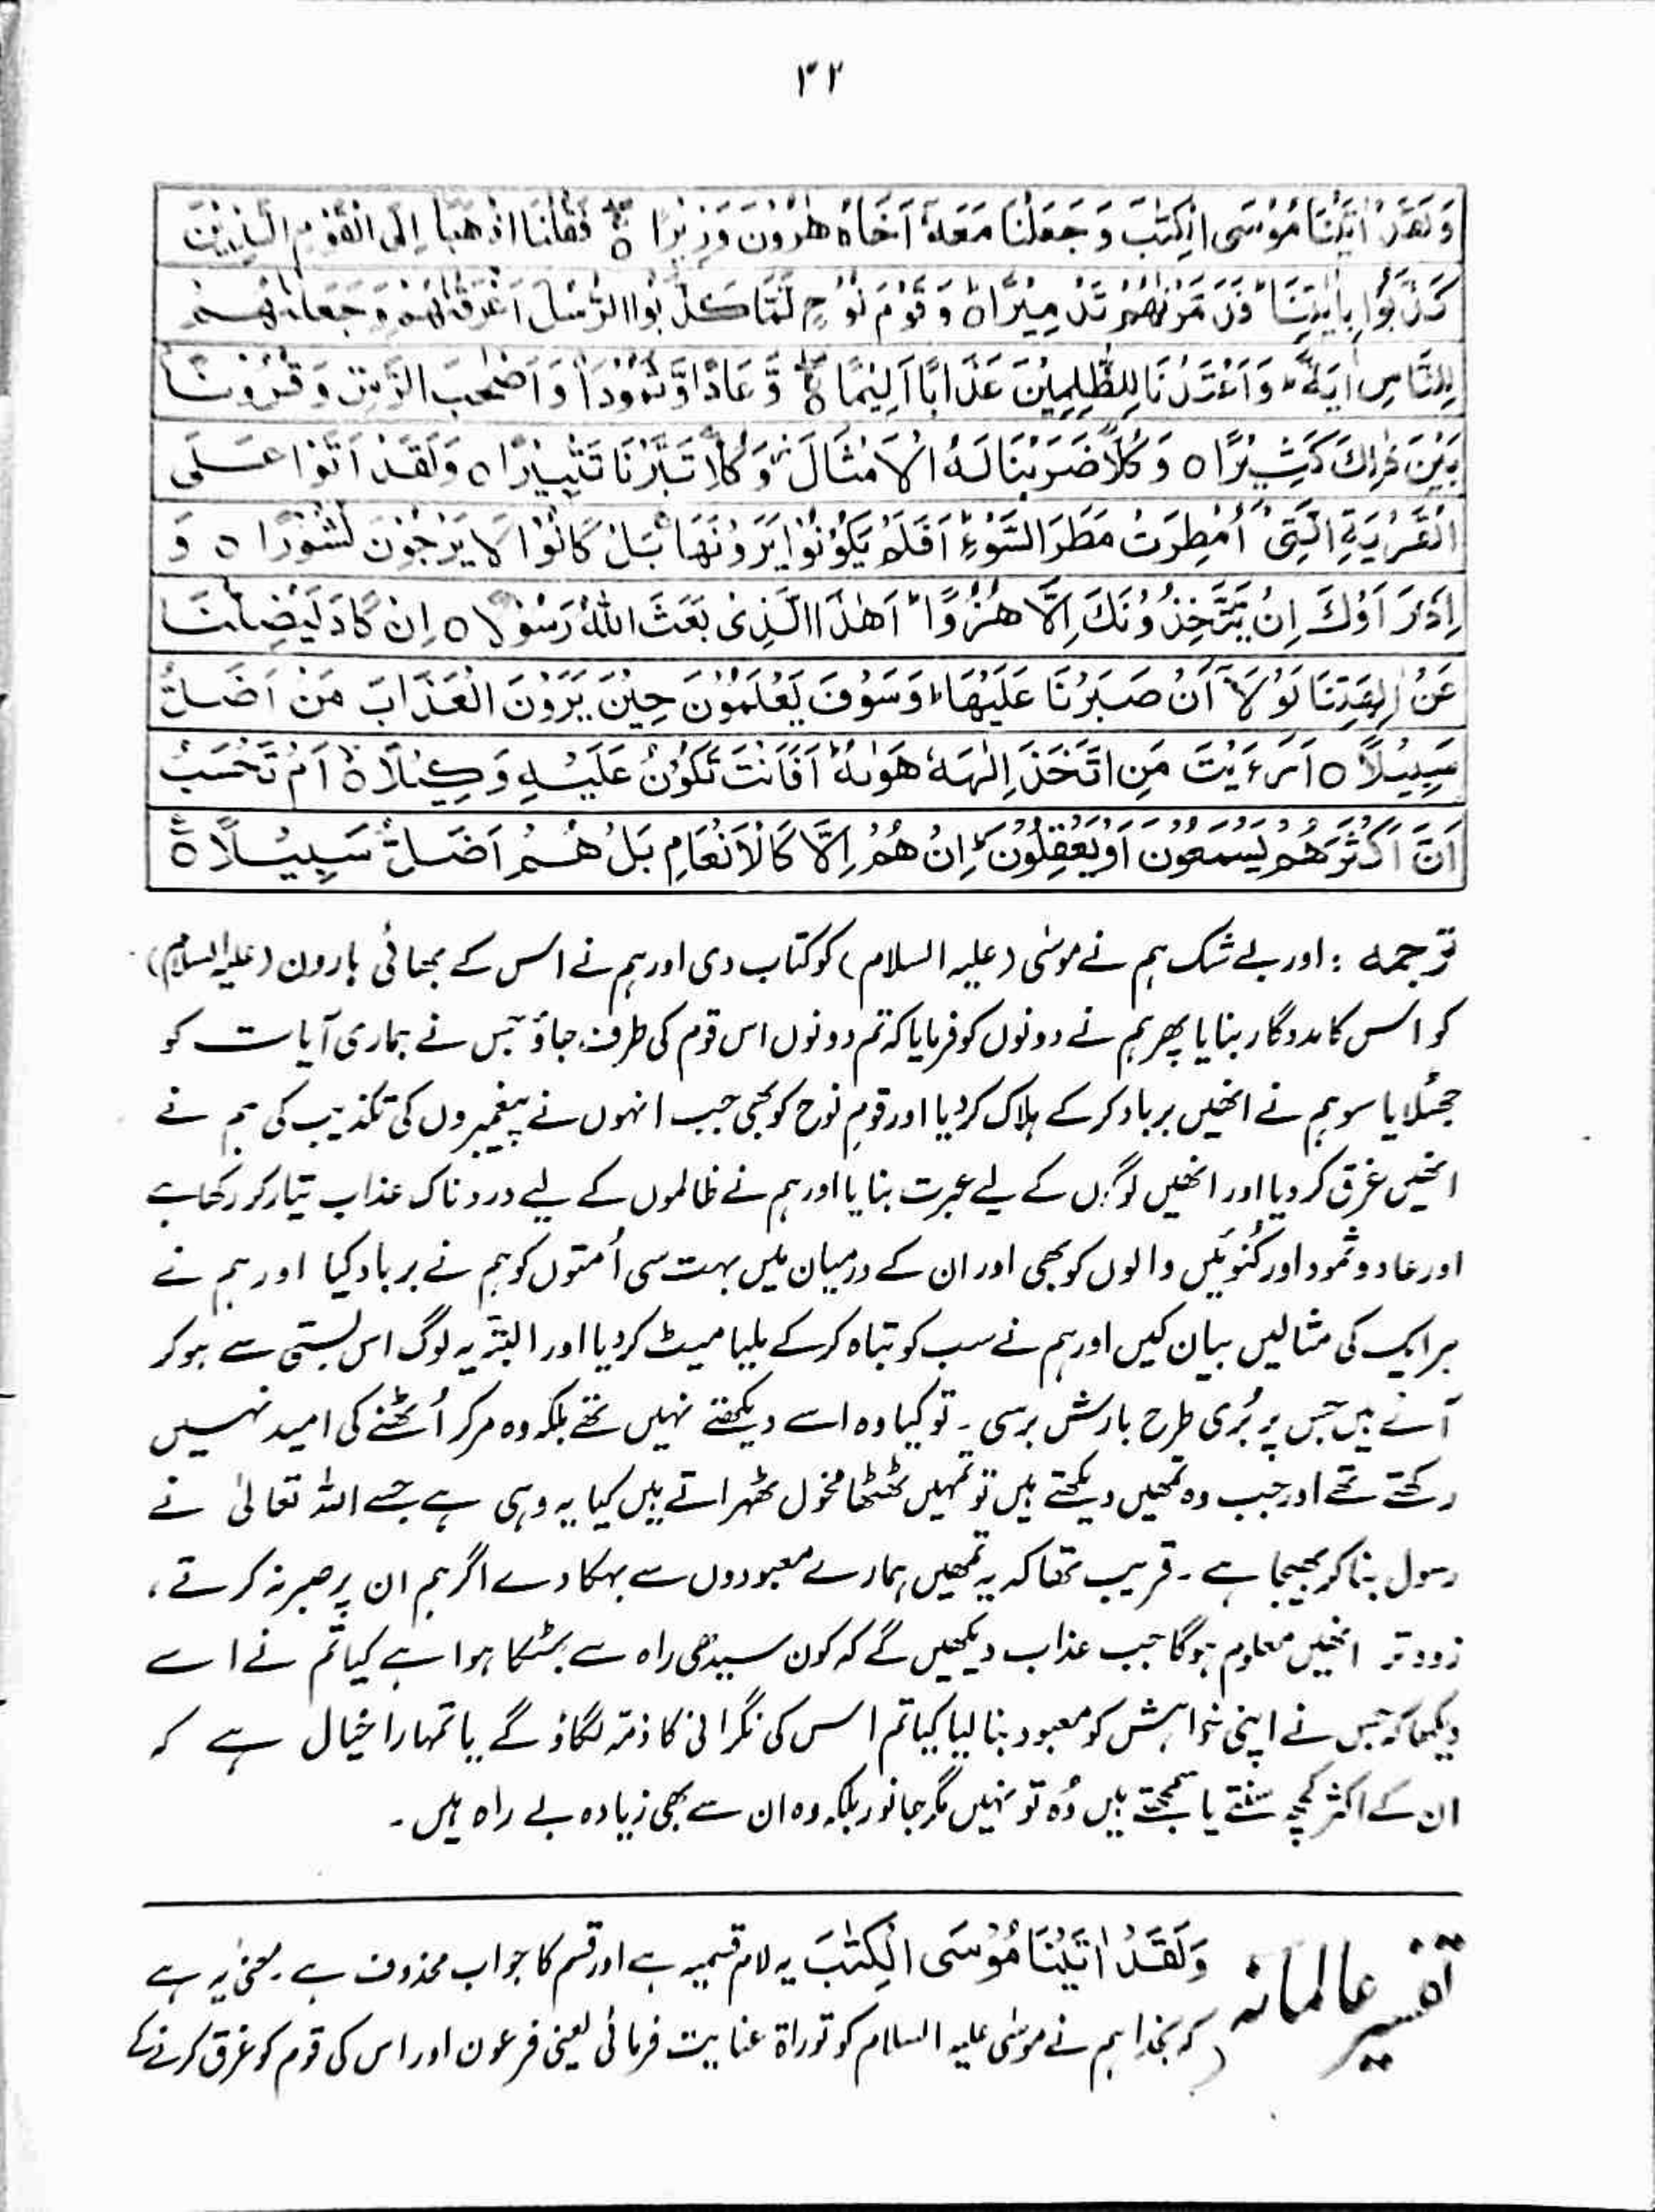 ۳۲
وَلَقَدْ اٰتَيْنَا مُوْسَى الْكِتٰبَ وَجَعَلْنَا مَعَهٗٓ اَخَاهُ هٰرُوْنَ وَزِيْرًا ۝ فَقُلْنَا اذْهَبَآ اِلَى الْقَوْمِ الَّذِيْنَ
كَذَّبُوْا بِاٰيٰتِنَا ؕ فَدَمَّرْنٰهُمْ تَدْمِيْرًا ۝ وَقَوْمَ نُوْحٍ لَّمَّا كَذَّبُوا الرُّسُلَ اَغْرَقْنٰهُمْ وَجَعَلْنٰهُمْ
لِلنَّاسِ اٰيَةً ؕ وَاَعْتَدْنَا لِلظّٰلِمِيْنَ عَذَابًا اَلِيْمًا ۝ وَّعَادًا وَّثَمُوْدَا۟ وَاَصْحٰبَ الرَّسِّ وَقُرُوْنًۢا
بَيْنَ ذٰلِكَ كَثِيْرًا ۝ وَكُلًّا ضَرَبْنَا لَهُ الْاَمْثَالَ ؗ وَكُلًّا تَبَّرْنَا تَتْبِيْرًا ۝ وَلَقَدْ اَتَوْا عَلَى
الْقَرْيَةِ الَّتِيْٓ اُمْطِرَتْ مَطَرَ السَّوْءِ ؕ اَفَلَمْ يَكُوْنُوْا يَرَوْنَهَا ۚ بَلْ كَانُوْا لَا يَرْجُوْنَ نُشُوْرًا ۝ وَ
اِذَا رَاَوْكَ اِنْ يَّتَّخِذُوْنَكَ اِلَّا هُزُوًا ؕ اَهٰذَا الَّذِيْ بَعَثَ اللّٰهُ رَسُوْلًا ۝ اِنْ كَادَ لَيُضِلُّنَا
عَنْ اٰلِهَتِنَا لَوْلَآ اَنْ صَبَرْنَا عَلَيْهَا ؕ وَسَوْفَ يَعْلَمُوْنَ حِيْنَ يَرَوْنَ الْعَذَابَ مَنْ اَضَلُّ
سَبِيْلًا ۝ اَرَءَيْتَ مَنِ اتَّخَذَ اِلٰهَهٗ هَوٰىهُ ؕ اَفَاَنْتَ تَكُوْنُ عَلَيْهِ وَكِيْلًا ۝ اَمْ تَحْسَبُ
اَنَّ اَكْثَرَهُمْ يَسْمَعُوْنَ اَوْ يَعْقِلُوْنَ ؕ اِنْ هُمْ اِلَّا كَالْاَنْعَامِ بَلْ هُمْ اَضَلُّ سَبِيْلًا ۝
ترجمہ : اور بے شک ہم نے موسٰی (علیہ السلام) کو کتاب دی اور ہم نے اس کے بھائی ہارون (علیہ السلام)
کو اس کا مددگار بنایا پھر ہم نے دونوں کو فرمایا کہ تم دونوں اس قوم کی طرف جاؤ جس نے ہماری آیات کو
جھٹلایا سو ہم نے انھیں برباد کر کے ہلاک کر دیا اور قوم نوح کو بھی جب انہوں نے پیغمبروں کی تکذیب کی ہم نے
انھیں غرق کر دیا اور انھیں لوگوں کے لیے عبرت بنایا اور ہم نے ظالموں کے لیے دردناک عذاب تیار کر رکھا ہے
اور عاد و ثمود اور کنوئیں والوں کو بھی اور ان کے درمیان میں بہت سی اُمتوں کو ہم نے برباد کیا اور ہم نے
ہر ایک کی مثالیں بیان کیں اور ہم نے سب کو تباہ کر کے ملیا میٹ کر دیا اور البتہ یہ لوگ اس بستی سے ہو کر
آئے ہیں جس پر بُری طرح بارش برسی ۔ تو کیا وہ اسے دیکھتے نہیں تھے بلکہ وہ مر کر اُٹھنے کی امید نہیں
رکھتے تھے اور جب وہ تمھیں دیکھتے ہیں تو تمہیں ٹھٹھا مخول ٹھہراتے ہیں کیا یہ وہی ہے جسے اللہ تعالیٰ نے
رسول بنا کر بھیجا ہے ۔ قریب تھا کہ یہ تمھیں ہمارے معبودوں سے بہکا دے اگر ہم ان پر صبر نہ کرتے ،
زود تر انھیں معلوم ہوگا جب عذاب دیکھیں گے کہ کون سیدھی راہ سے بھٹکا ہوا ہے کیا تم نے اسے
دیکھا کہ جس نے اپنی خواہش کو معبود بنا لیا کیا تم اس کی نگرانی کا ذمہ لگاؤ گے یا تمہارا خیال ہے کہ
ان کے اکثر کچھ سنتے یا سمجھتے ہیں وُہ تو نہیں مگر جانور بلکہ وہ ان سے بھی زیادہ بے راہ ہیں ۔
تفسیر عالمانہ
وَلَقَدْ اٰتَيْنَا مُوْسَى الْكِتٰبَ یہ لام قسمیہ ہے اور قسم کا جواب محذوف ہے ۔ معنیٰ یہ ہے
کہ بخدا ہم نے موسٰی علیہ السلام کو توراۃ عنایت فرمائی یعنی فرعون اور اس کی قوم کو غرق کرنے کے